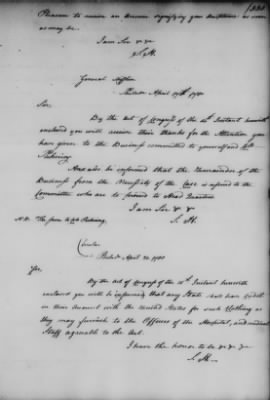 Pleasure to receive an Answer signifying your Acceptance as soon
as may be.
I am Sir &c &c
S. H.
General Mifflin
Philada April 19th 1780
Sir,
By the Act of Congress of the Instant herewith
enclosed you will receive their thanks for the Attention you
have given to the Business committed to yourself and
Pickering.
And also be informed that the Remainder of the
Business from the Necessity of the Case is referred to the
Committee who are to proceed to Head Quarters
I am Sir & &
S. H.
N.B. The same to Pickering.
Circular
Philad. April 20. 1780
Sir,
By the Act of Congress of the 10th Instant herewith
enclosed you will be informed that any State shall have Credit
in their Account with the United States for such Clothing as
they may furnish to the Officers of the Hospital, and medical
Staff agreable to the Act.
I have the honor to be &c &c &c
S. H.